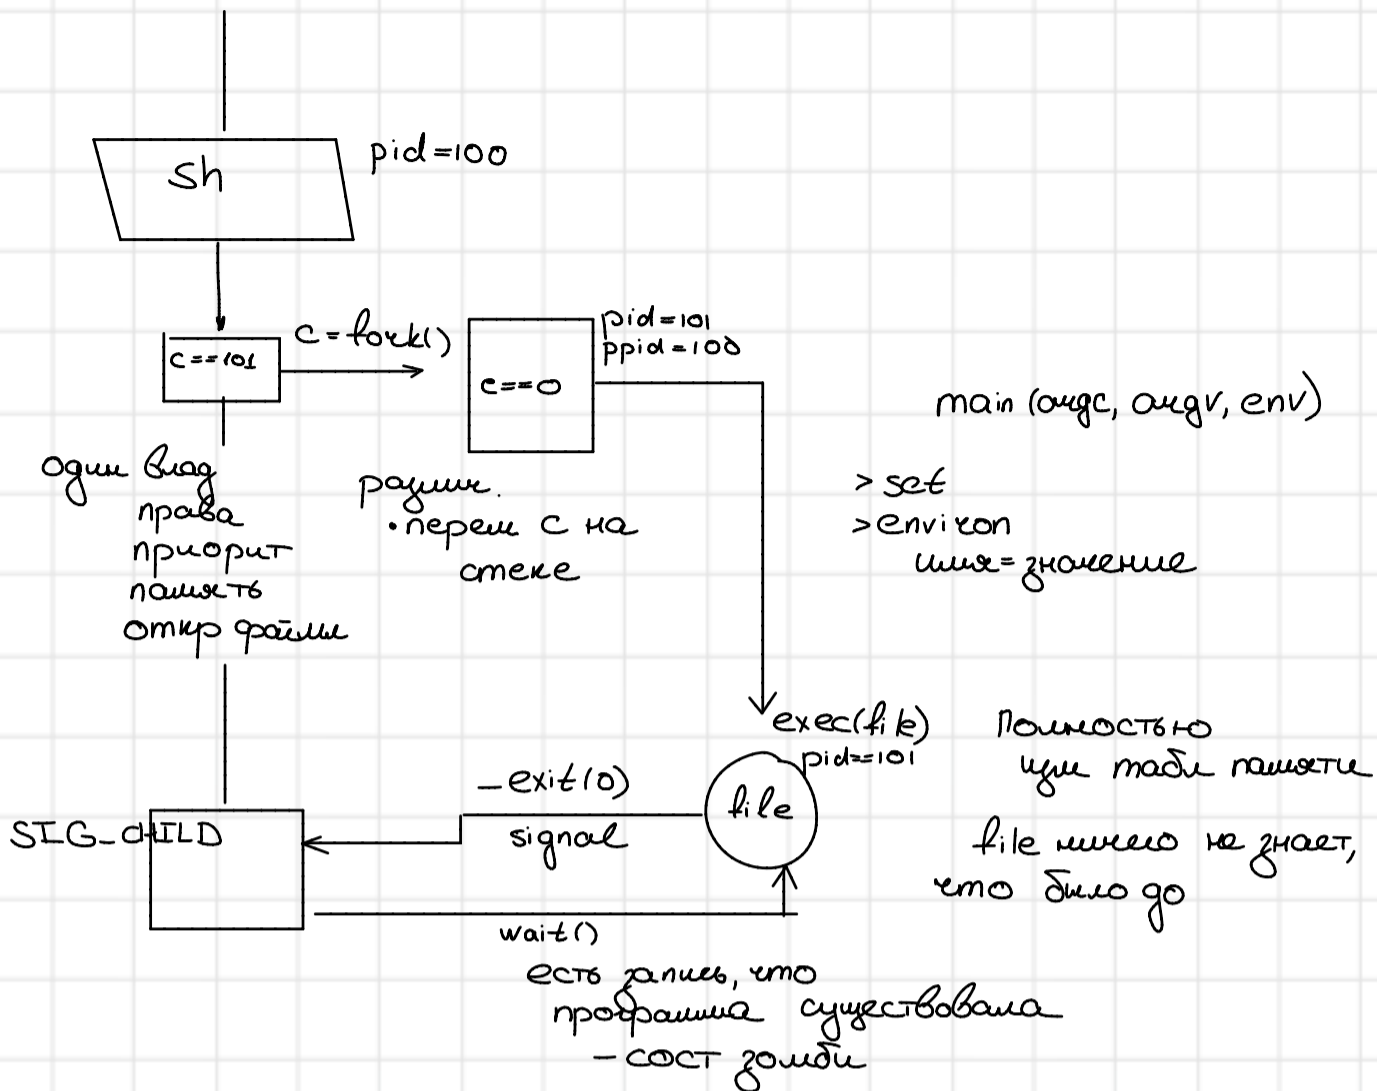 sh
pid=100
c=fork()
c==101
pid=101
ppid=100
c==0
main (argc, argv, env)
один влад
права
приорит
память
откр файлы
различ.
• перем с на
стеке
> set
> environ
имя=значение
exec(file)
pid==101
file
Полностью
изм табл памяти
file ничего не знает,
что было до
_exit(0)
signal
SIG_CHILD
wait()
есть запись, что
программа существовала
- сост зомби